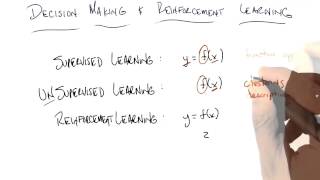 DECISION MAKING & REINFORCEMENT LEARNING
SUPERVISED LEARNING: y = f(x)
UNSUPERVISED LEARNING: f(x) clustering
description
REINFORCEMENT LEARNING: y = f(x)
z